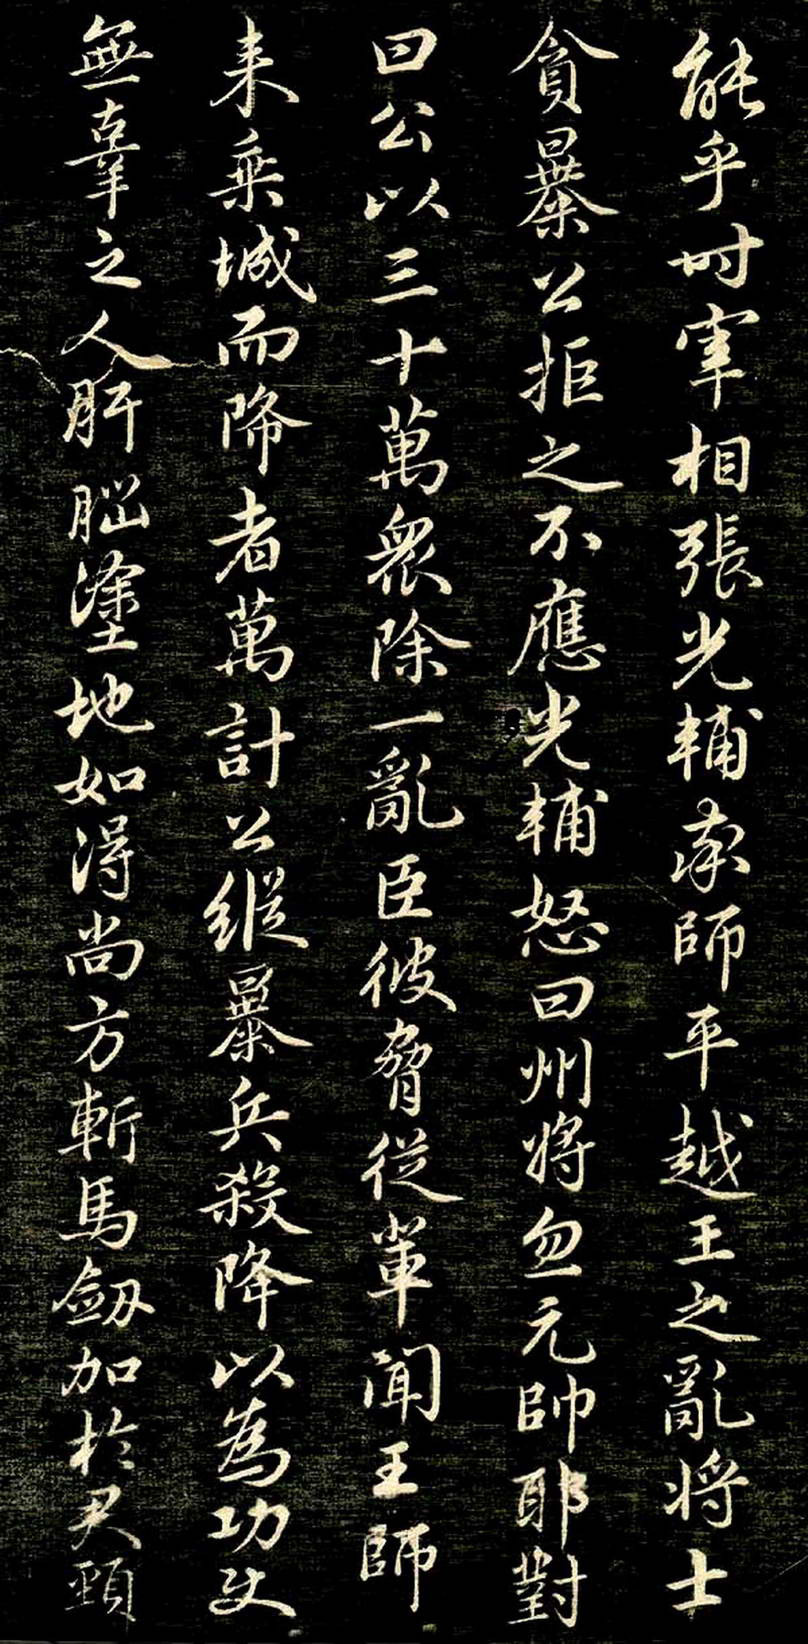 能乎时宰相張光輔率師平越王之亂將士
貪暴公拒之不應光輔怒曰州將忽元帥耶對
曰公以三十萬衆除一亂臣彼脅從輩聞王師
来乘城而降者萬計公縱暴兵殺降以為功使
無辜之人肝腦塗地如得尚方斬馬劔加於君頸